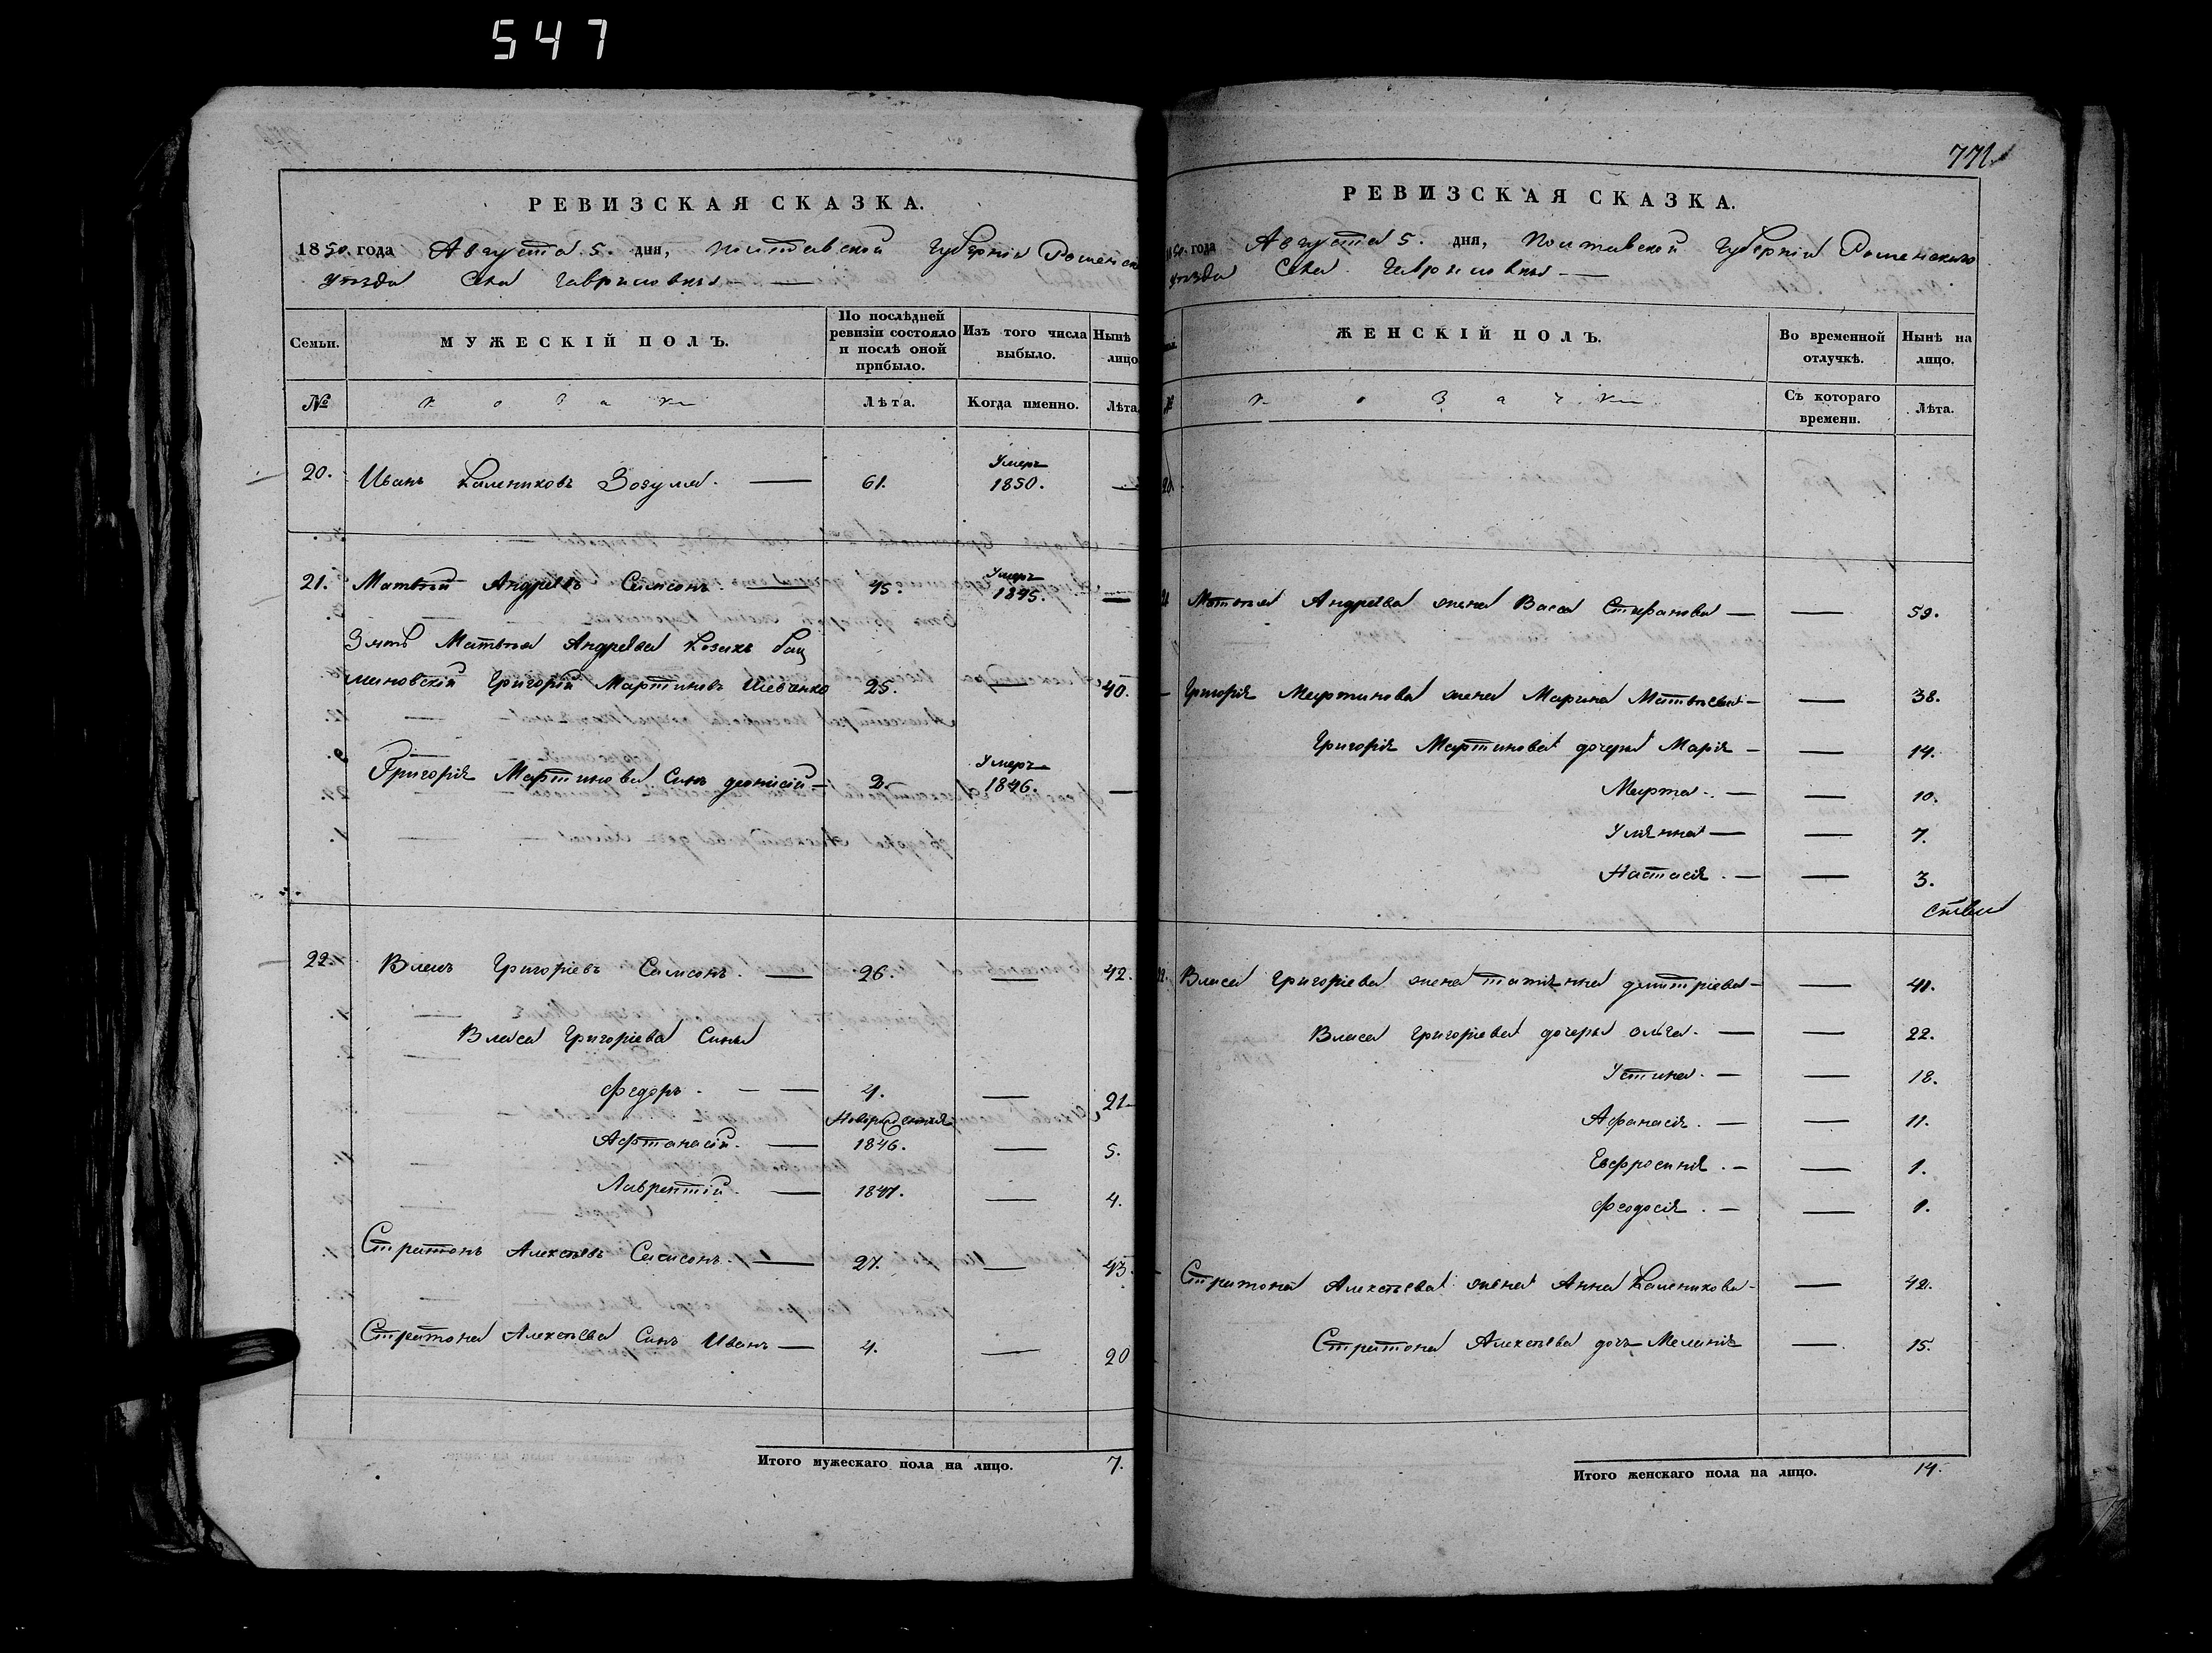 547
РЕВИЗСКАЯ СКАЗКА.
1850. года Августа 5. дня, Полтавской Губерніи Роменск
уѣзда Села Гавриловки —
Семьи.
МУЖЕСКІЙ ПОЛЪ.
По послѣдней ревизіи состояло и послѣ оной прибыло.
Изъ того числа выбыло.
Нынѣ лицо
№
Козаки
Лѣта.
Когда именно.
Лѣта
20. Иванъ Калениковъ Зозуля. — 61. Умеръ 1850. —
21. Матвѣй Андреевъ Самсонъ. — 45. Умеръ 1845. —
Зять Матвѣя Андреева Козакъ
Григорій Мартиновъ Шевченко 25. — 40.
Григорія Мартинова Синъ Деонисій — 2. Умеръ 1846. —
22. Власъ Григоріевъ Самсонъ. — 26. — 42.
Власа Григоріева Сины
Федоръ. — — 4. — 21
Новорожденния
Афтанасій. — 1846. — 5.
Лаврентій. — 1847. — 4.
Стратонъ Алексѣевъ Самсонъ. — 27. — 43.
Стратона Алексѣева Синъ Иванъ — 4. — 20
Итого мужескаго пола на лицо. 7.
771.
РЕВИЗСКАЯ СКАЗКА.
1850. года Августа 5. дня, Полтавской Губерніи Роменского
уѣзда Села Гавриловки —
ЖЕНСКІЙ ПОЛЪ.
Во временной отлучкѣ.
Нынѣ на лицо.
№
Козачки
Съ котораго времени.
Лѣта.
20.
21 Матвѣя Андреева жена Васа Стефанова — — 59.
Григорія Мартинова жена Марина Матвѣева — — 38.
Григорія Мартинова дочери Марія — — 14.
Марта. — — 10.
Уліянна — — 7.
Настасія. — — 3.
22. Власа Григоріева жена Татіянна Дмитріева — — 41.
Власа Григоріева дочери Ольга. — — 22.
Устина. — — 18.
Афанасія. — — 11.
Евфросинія. — — 1.
Феодосія. — — 1.
Стратона Алексѣева жена Анна Каленикова — — 42.
Стратона Алексѣева дочь Меланія — 15.
Итого женскаго пола на лицо. 14.